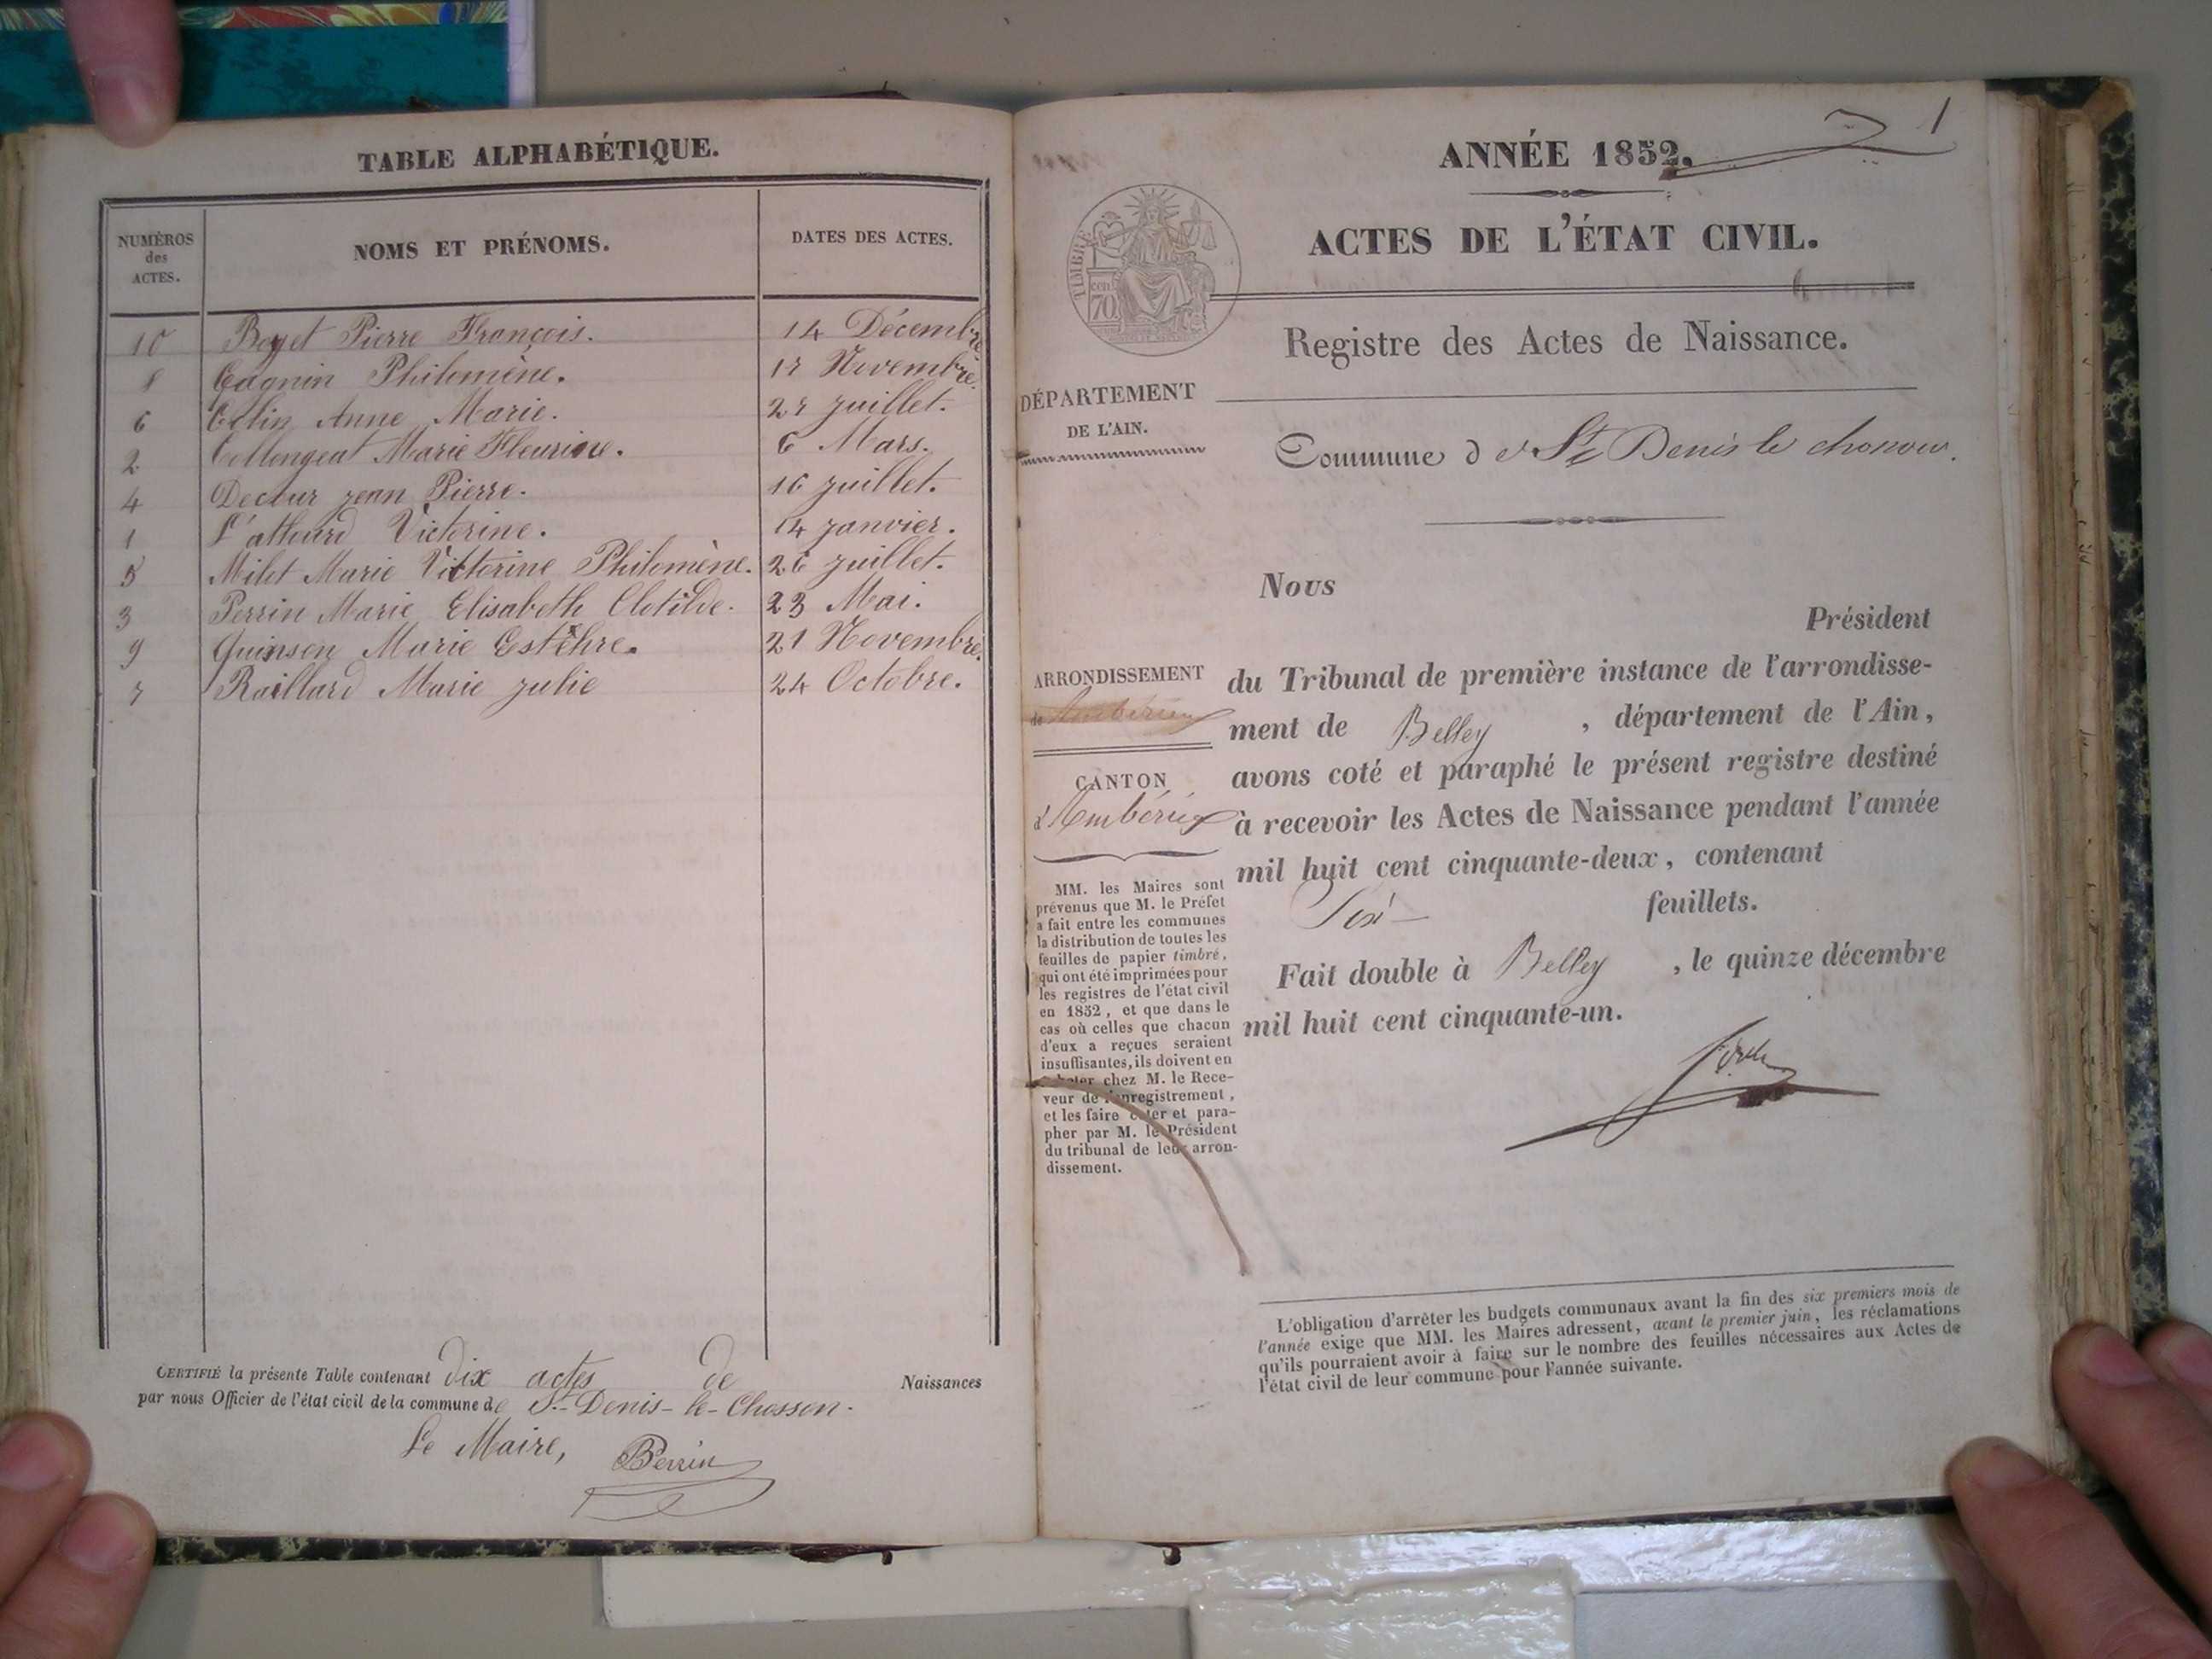 TABLE ALPHABÉTIQUE.
NUMÉROS des ACTES. NOMS ET PRÉNOMS. DATES DES ACTES.
10 Boyet Pierre François. 14 Décembre.
8 Cagnin Philomène. 17 Novembre.
6 Colin Anne Marie. 27 juillet.
2 Collongeat Marie Fleurine. 6 Mars.
4 Decour jean Pierre. 16 juillet.
1 Victorine. 14 janvier.
5 Milet Marie Victorine Philomène. 26 juillet.
3 Perrin Marie Elisabeth Clotilde. 23 Mai.
9 Quinson Marie Estèhre. 21 Novembre.
7 Raillard Marie julie 24 Octobre.
CERTIFIÉ la présente Table contenant dix actes de Naissances
par nous Officier de l'état civil de la commune de St-Denis-le-Chosson.
Le Maire, Perrin
1
ANNÉE 1852.
ACTES DE L'ÉTAT CIVIL.
TIMBRE
cen. 70
Registre des Actes de Naissance.
DÉPARTEMENT
DE L'AIN.
Commune de St Denis le choson.
Nous
Président
ARRONDISSEMENT
de Ambérieu
CANTON
d'Ambérieu
du Tribunal de première instance de l'arrondisse-
ment de Belley , département de l'Ain,
avons coté et paraphé le présent registre destiné
à recevoir les Actes de Naissance pendant l'année
mil huit cent cinquante-deux, contenant
Six feuillets.
Fait double à Belley , le quinze décembre
mil huit cent cinquante-un.
MM. les Maires sont
prévenus que M. le Préfet
a fait entre les communes
la distribution de toutes les
feuilles de papier timbré,
qui ont été imprimées pour
les registres de l'état civil
en 1852, et que dans le
cas où celles que chacun
d'eux a reçues seraient
insuffisantes, ils doivent en
acheter chez M. le Rece-
veur de l'enregistrement,
et les faire coter et para-
pher par M. le Président
du tribunal de leur arron-
dissement.
L'obligation d'arrêter les budgets communaux avant la fin des six premiers mois de
l'année exige que MM. les Maires adressent, avant le premier juin, les réclamations
qu'ils pourraient avoir à faire sur le nombre des feuilles nécessaires aux Actes de
l'état civil de leur commune pour l'année suivante.